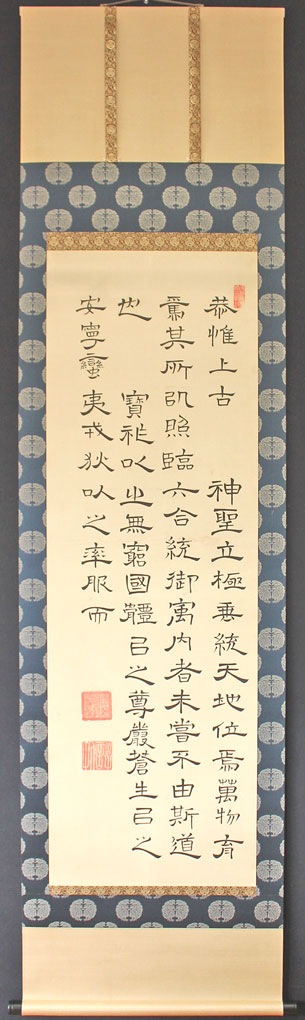 恭惟上古　神聖立極垂統天地位焉萬物育
焉其所㕥照臨六合統御寓内者未嘗不由斯道
也　寶祚以之無窮國體㠯之尊嚴蒼生㠯之
安寧蠻夷戎狄以之率服而